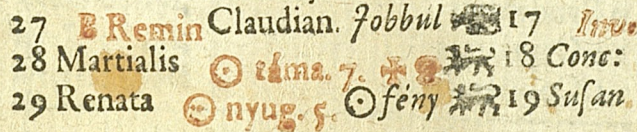 27 E Remin Claudian. Jobbúl 17
28 Martialis ☉ táma. 7. ✠ 18 Conc:
29 Renata ☉ nyug. 5. ☉ fény 19 Suſan